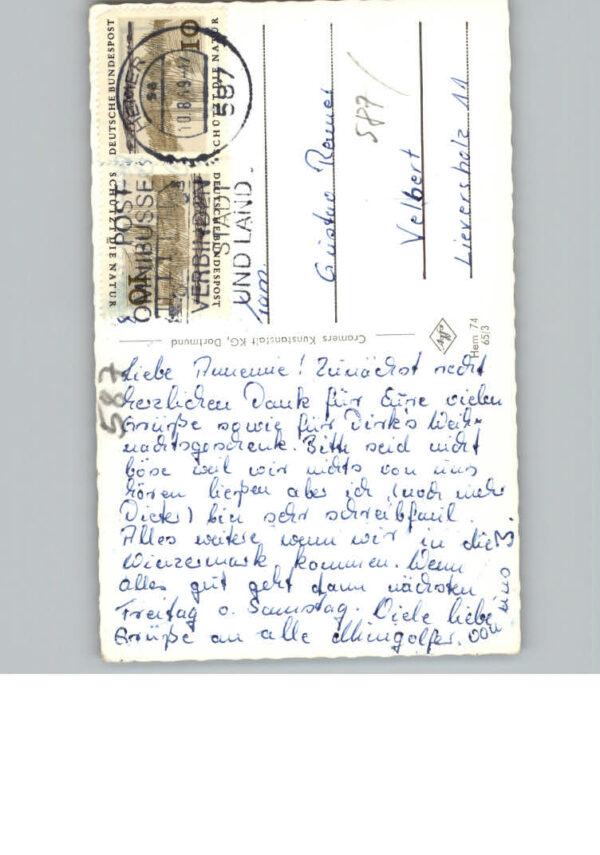 Liebe Annemie! Zunächst recht
herzlichen Dank für Eure vielen
Grüße sowie für Dirk's Weih-
nachtsgeschenk. Bitte seid nicht
böse weil wir nichts von uns
hören ließen aber ich (noch mehr
Dieter) bin sehr schreibfaul.
Alles weitere wenn wir in die
Winzermark kommen. Wenn
alles gut geht dann nächsten
Freitag o. Samstag. Viele liebe
Grüße an alle Mingolfer. von uns 3.
Fam.
Gustav
Velbert
Lieversholz 11
587
587
DEUTSCHE BUNDESPOST
SCHÜTZT DIE NATUR
10
DEUTSCHE BUNDESPOST
SCHÜTZT DIE NATUR
10
HEMER
587
10.8
POST
OMNIBUSSE
VERBINDEN
STADT
UND LAND
Cramers Kunstanstalt KG, Dortmund
Hem 74
65/3